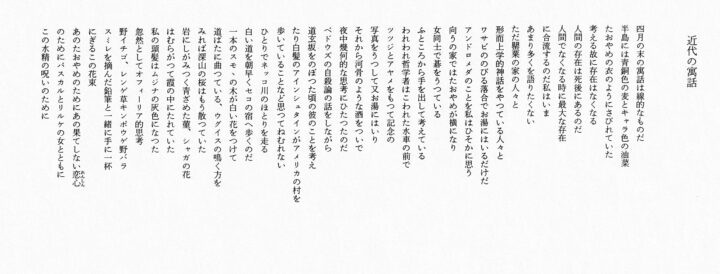 近代の寓話
四月の末の寓話は線的なものだ
半島には青銅色の麦とキャラ色の油菜
たおやめの衣のようにさびれていた
考える故に存在はなくなる
人間の存在は死後にあるのだ
人間でなくなる時に最大な存在
に合流するのだ私はいま
あまり多くを語りたくない
ただ罌粟の家の人々と
形而上学的神話をやつている人々と
ワサビののびる落合でお湯にはいるだけだ
アンドロメダのことを私はひそかに思う
向うの家ではたおやめが横になり
女同士で碁をうつている
ふところから手を出して考えている
われわれ哲学者はこわれた水車の前で
ツツジとアヤメをもつて記念の
写真をうつして又お湯にはいり
それから河骨のような酒をついで
夜中幾何的な思考にひたつたのだ
ベドウズの自殺論の話をしながら
道玄坂をのぼつた頃の彼のことを考え
たり白髪のアインシュタインがアメリカの村を
歩いていることなど思つてねむれない
ひとりでネッコ川のほとりを走る
白い道を朝早くセコの宿へ歩くのだ
一本のスモヽの木が白い花をつけて
道ばたに曲つている、ウグイスの鳴く方を
みれば深山の桜はもう散つていた
岩にしがみつく青ざめた菫、シャガの花
はむらがつて霞の中にたれていた
私の頭髪はムジナの灰色になつた
忽然としてオフィーリア的思考
野イチゴ、レンゲ草キンポウゲ野バラ
スミレを摘んだ鉛筆と一緒に手に一杯
にぎるこの花束
あのたおやめのためにあの果てしない恋心
のためにパスカルとリルケの女とともに
この水精の呪いのために